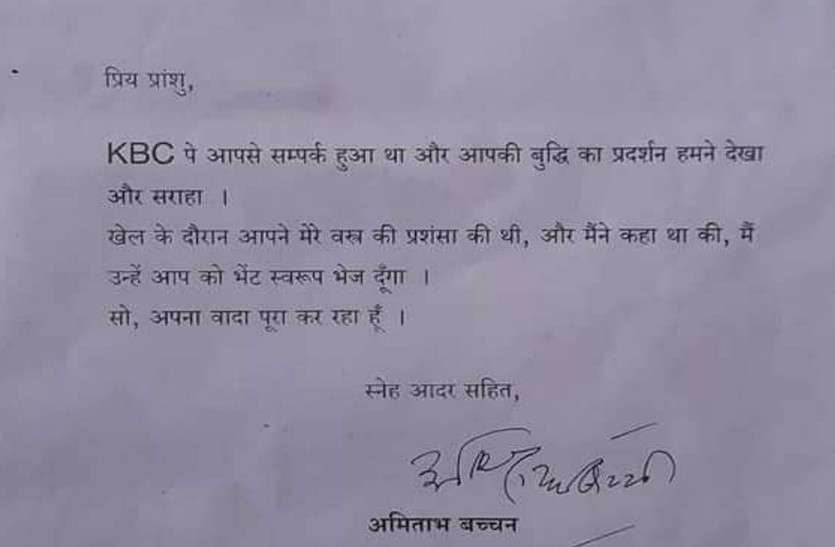 प्रिय प्रांशु,
KBC पे आपसे सम्पर्क हुआ था और आपकी बुद्धि का प्रदर्शन हमने देखा
और सराहा ।
खेल के दौरान आपने मेरे वस्त्र की प्रशंसा की थी, और मैंने कहा था की, मैं
उन्हें आप को भेंट स्वरूप भेज दूँगा ।
सो, अपना वादा पूरा कर रहा हूँ ।
स्नेह आदर सहित,
अमिताभ बच्चन